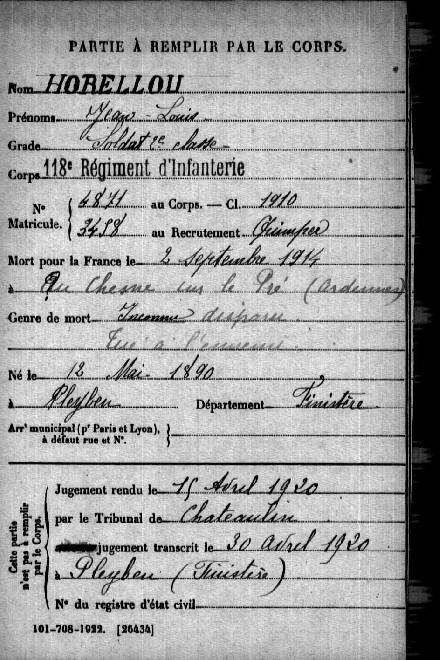 PARTIE À REMPLIR PAR LE CORPS.
Nom HORELLOU
Prénoms Jean-Louis
Grade Soldat 2e classe
Corps 118e Régiment d'Infanterie
N° Matricule. { 4871 au Corps. — Cl. 1910
3498 au Recrutement Quimper
Mort pour la France le 2 septembre 1914
à Au Chesne sur le Pré (Ardennes)
Genre de mort Inconnu disparu
Tué à l'ennemi
Né le 12 Mai 1890
à Pleyben Département Finistère
Arrt municipal (pr Paris et Lyon),
à défaut rue et N°.
Cette partie n'est pas à remplir par le Corps.
Jugement rendu le 15 Avril 1920
par le Tribunal de Chateaulin
jugement transcrit le 30 Avril 1920
à Pleyben (Finistère)
N° du registre d'état civil
101-708-1922. [26434]